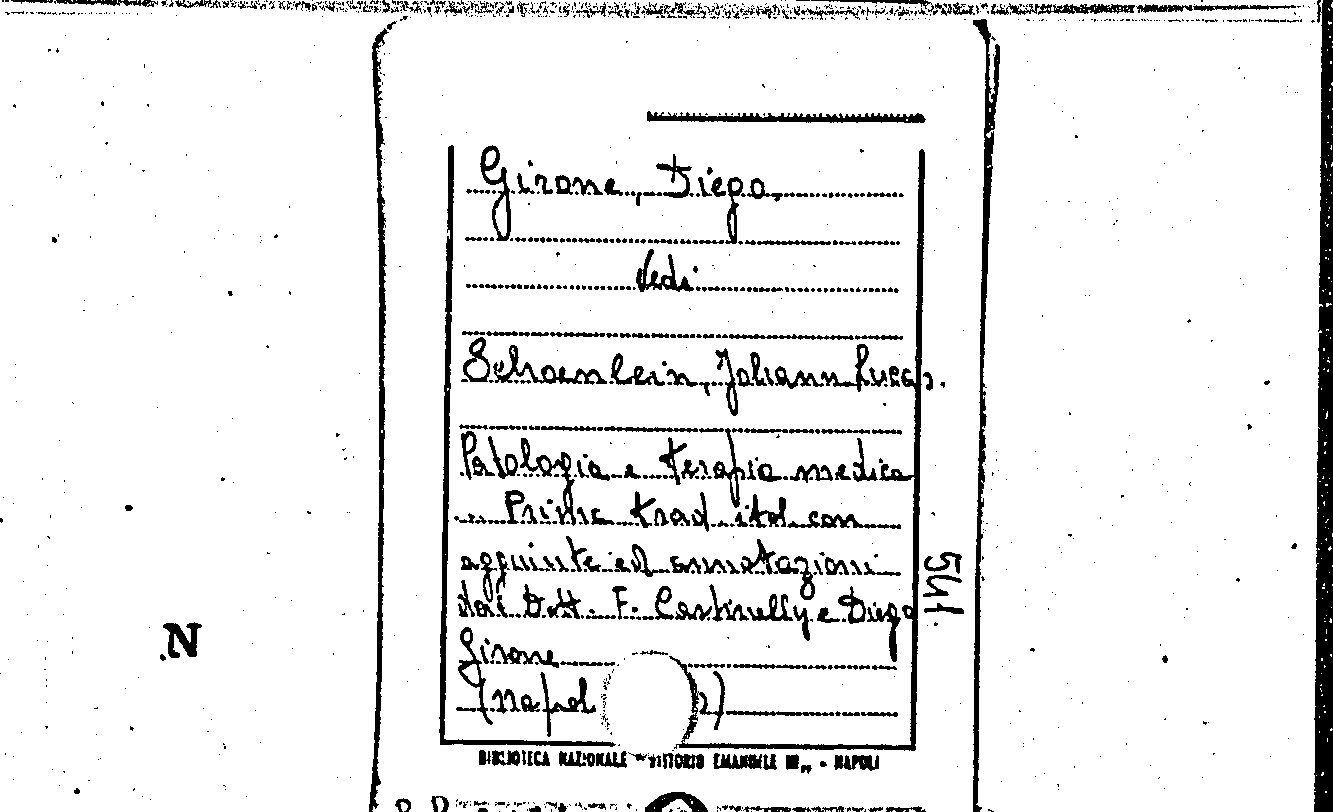 Girone, Diego.
Vedi
Schoenlein, Johann Lucas.
Patologia e terapia medica
... Prima trad. ital. con
aggiunte ed annotazioni
dei Dott. F. e Diego
Girone
(Napol
541.
BIBLIOTECA NAZIONALE "VITTORIO EMANUELE III" - NAPOLI
N